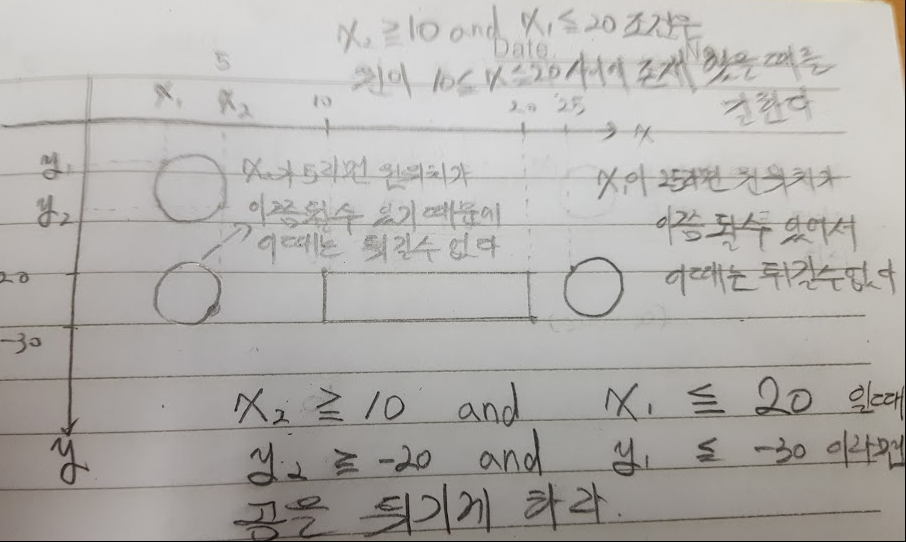 x₂ ≧10 and x₁ ≦ 20 조건은
Date
N
원이 10≤ x ≤20 사이에 존재 했을 때를
말한다
5
x₁ x₂ 10 20 25
x
y₁
y₂
x₂가 5라면 원위치가
이쯤 될수 있기 때문에
이때는 튀길수 없다
x₁이 25라면 원위치가
이쯤 될수 있어서
이때는 튀길수없다
20
-30
y
x₂ ≧ 10 and x₁ ≦ 20 일때
y₂ ≧ -20 and y₁ ≦ -30 이라면
공은 튀기게 하라.